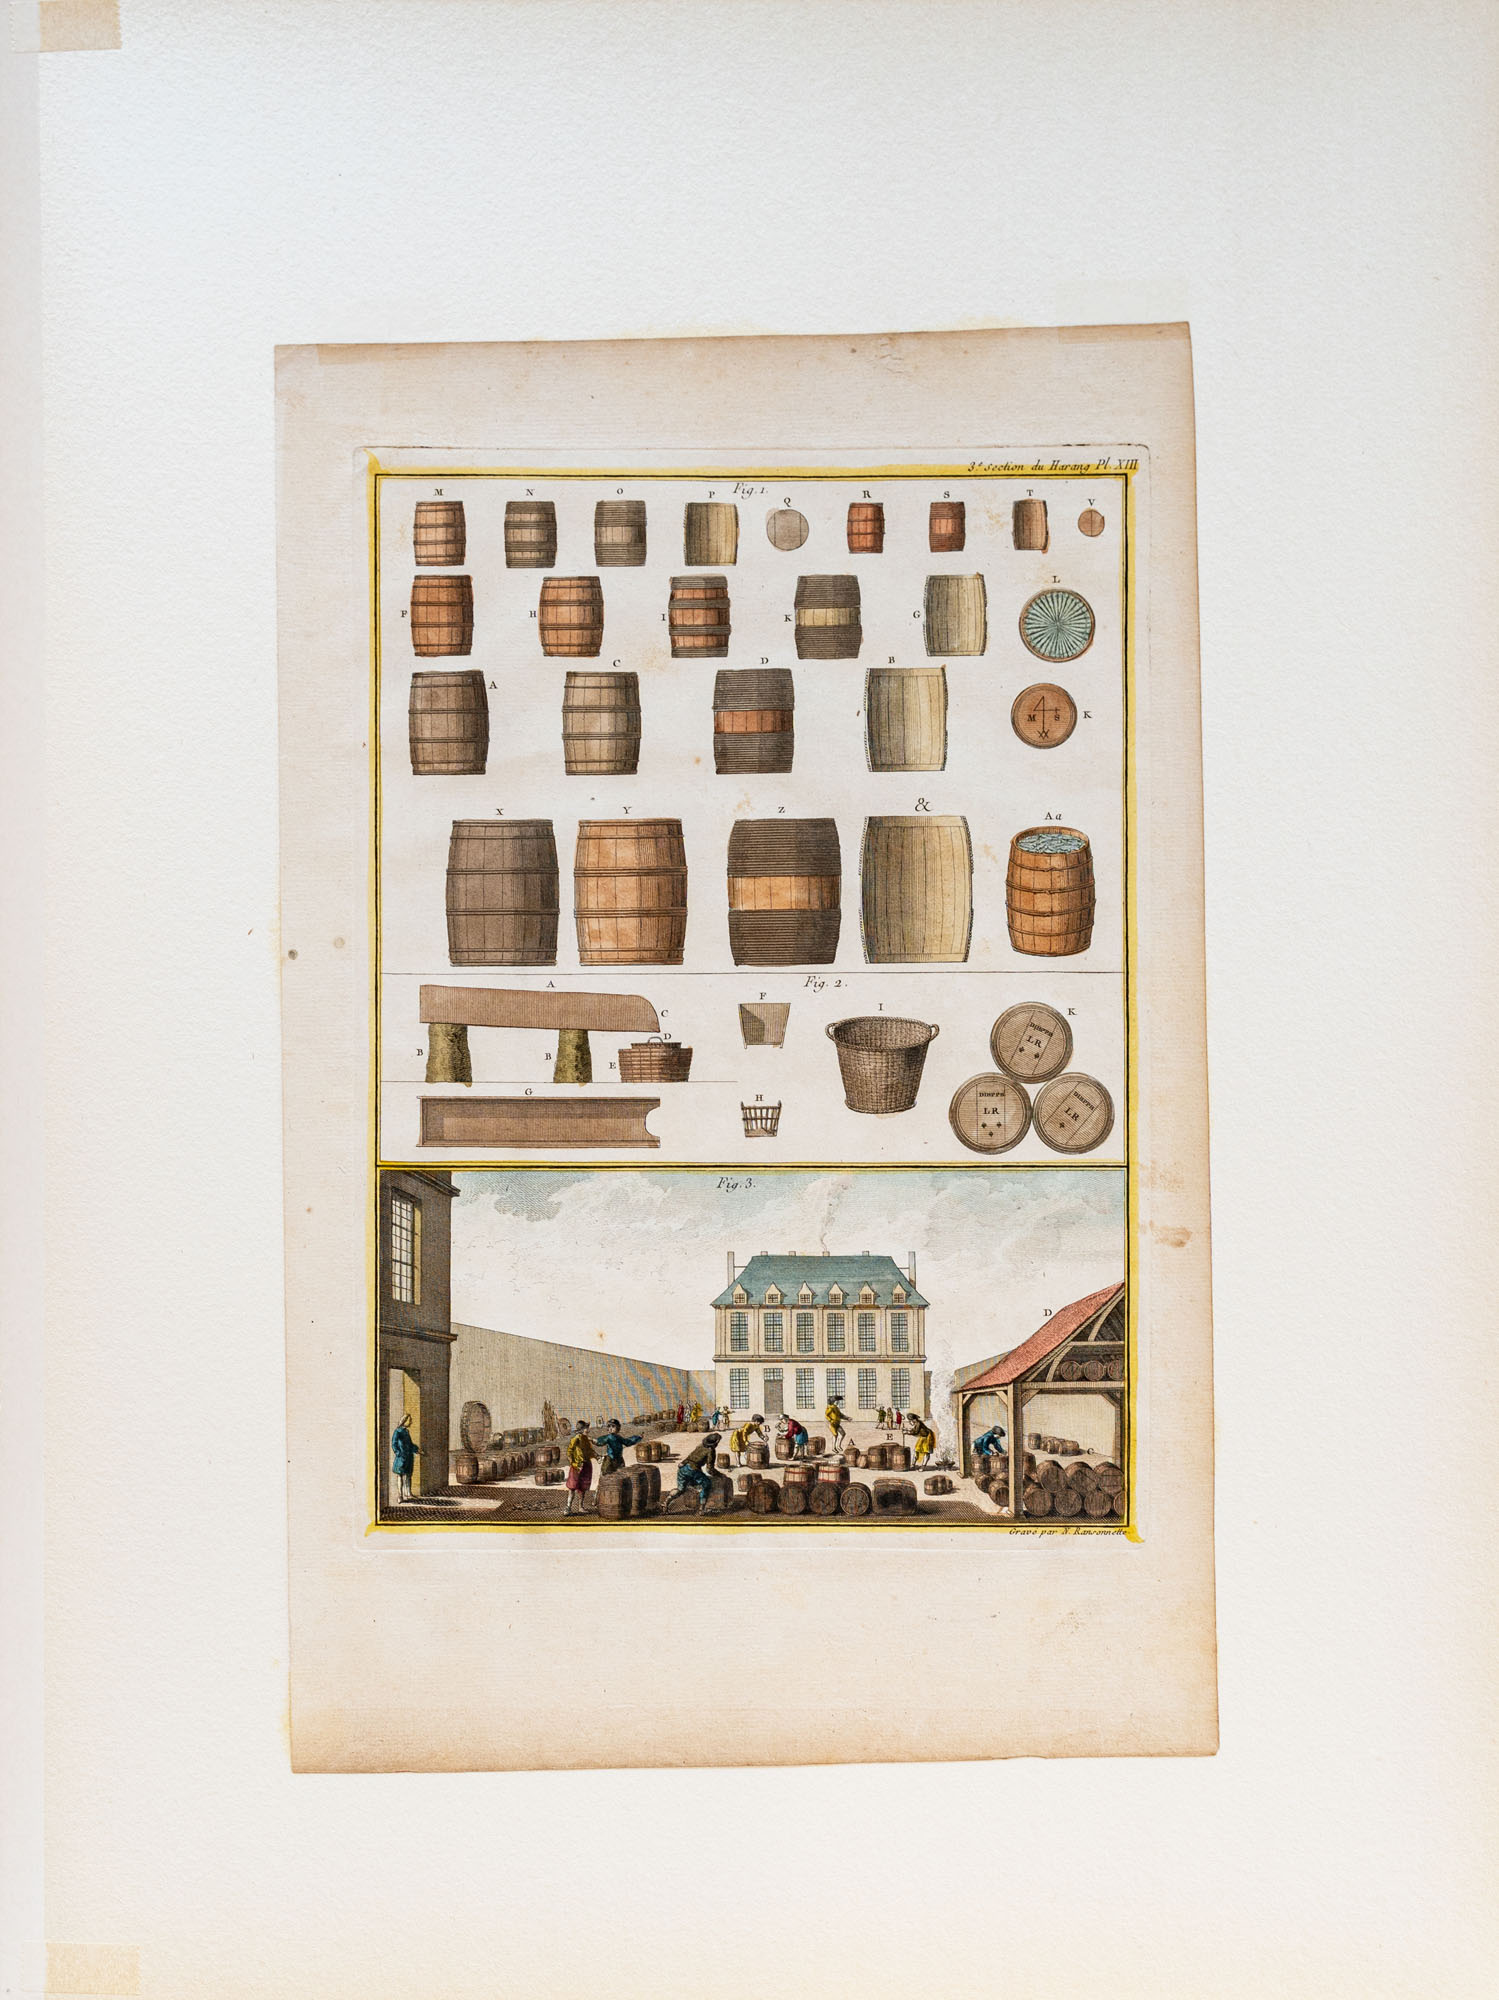 3.e section du Harang Pl. XIII
Fig. 1.
M N O P Q R S T V
F H I K G L
A C D B
M S K
X Y Z & Aa
Fig. 2.
A C B B D E F I K
DIEPPE
LR
DIEPPE
LR
DIEPPE
LR
G H
Fig. 3.
D
B A E C
Gravé par N. Ransonnette